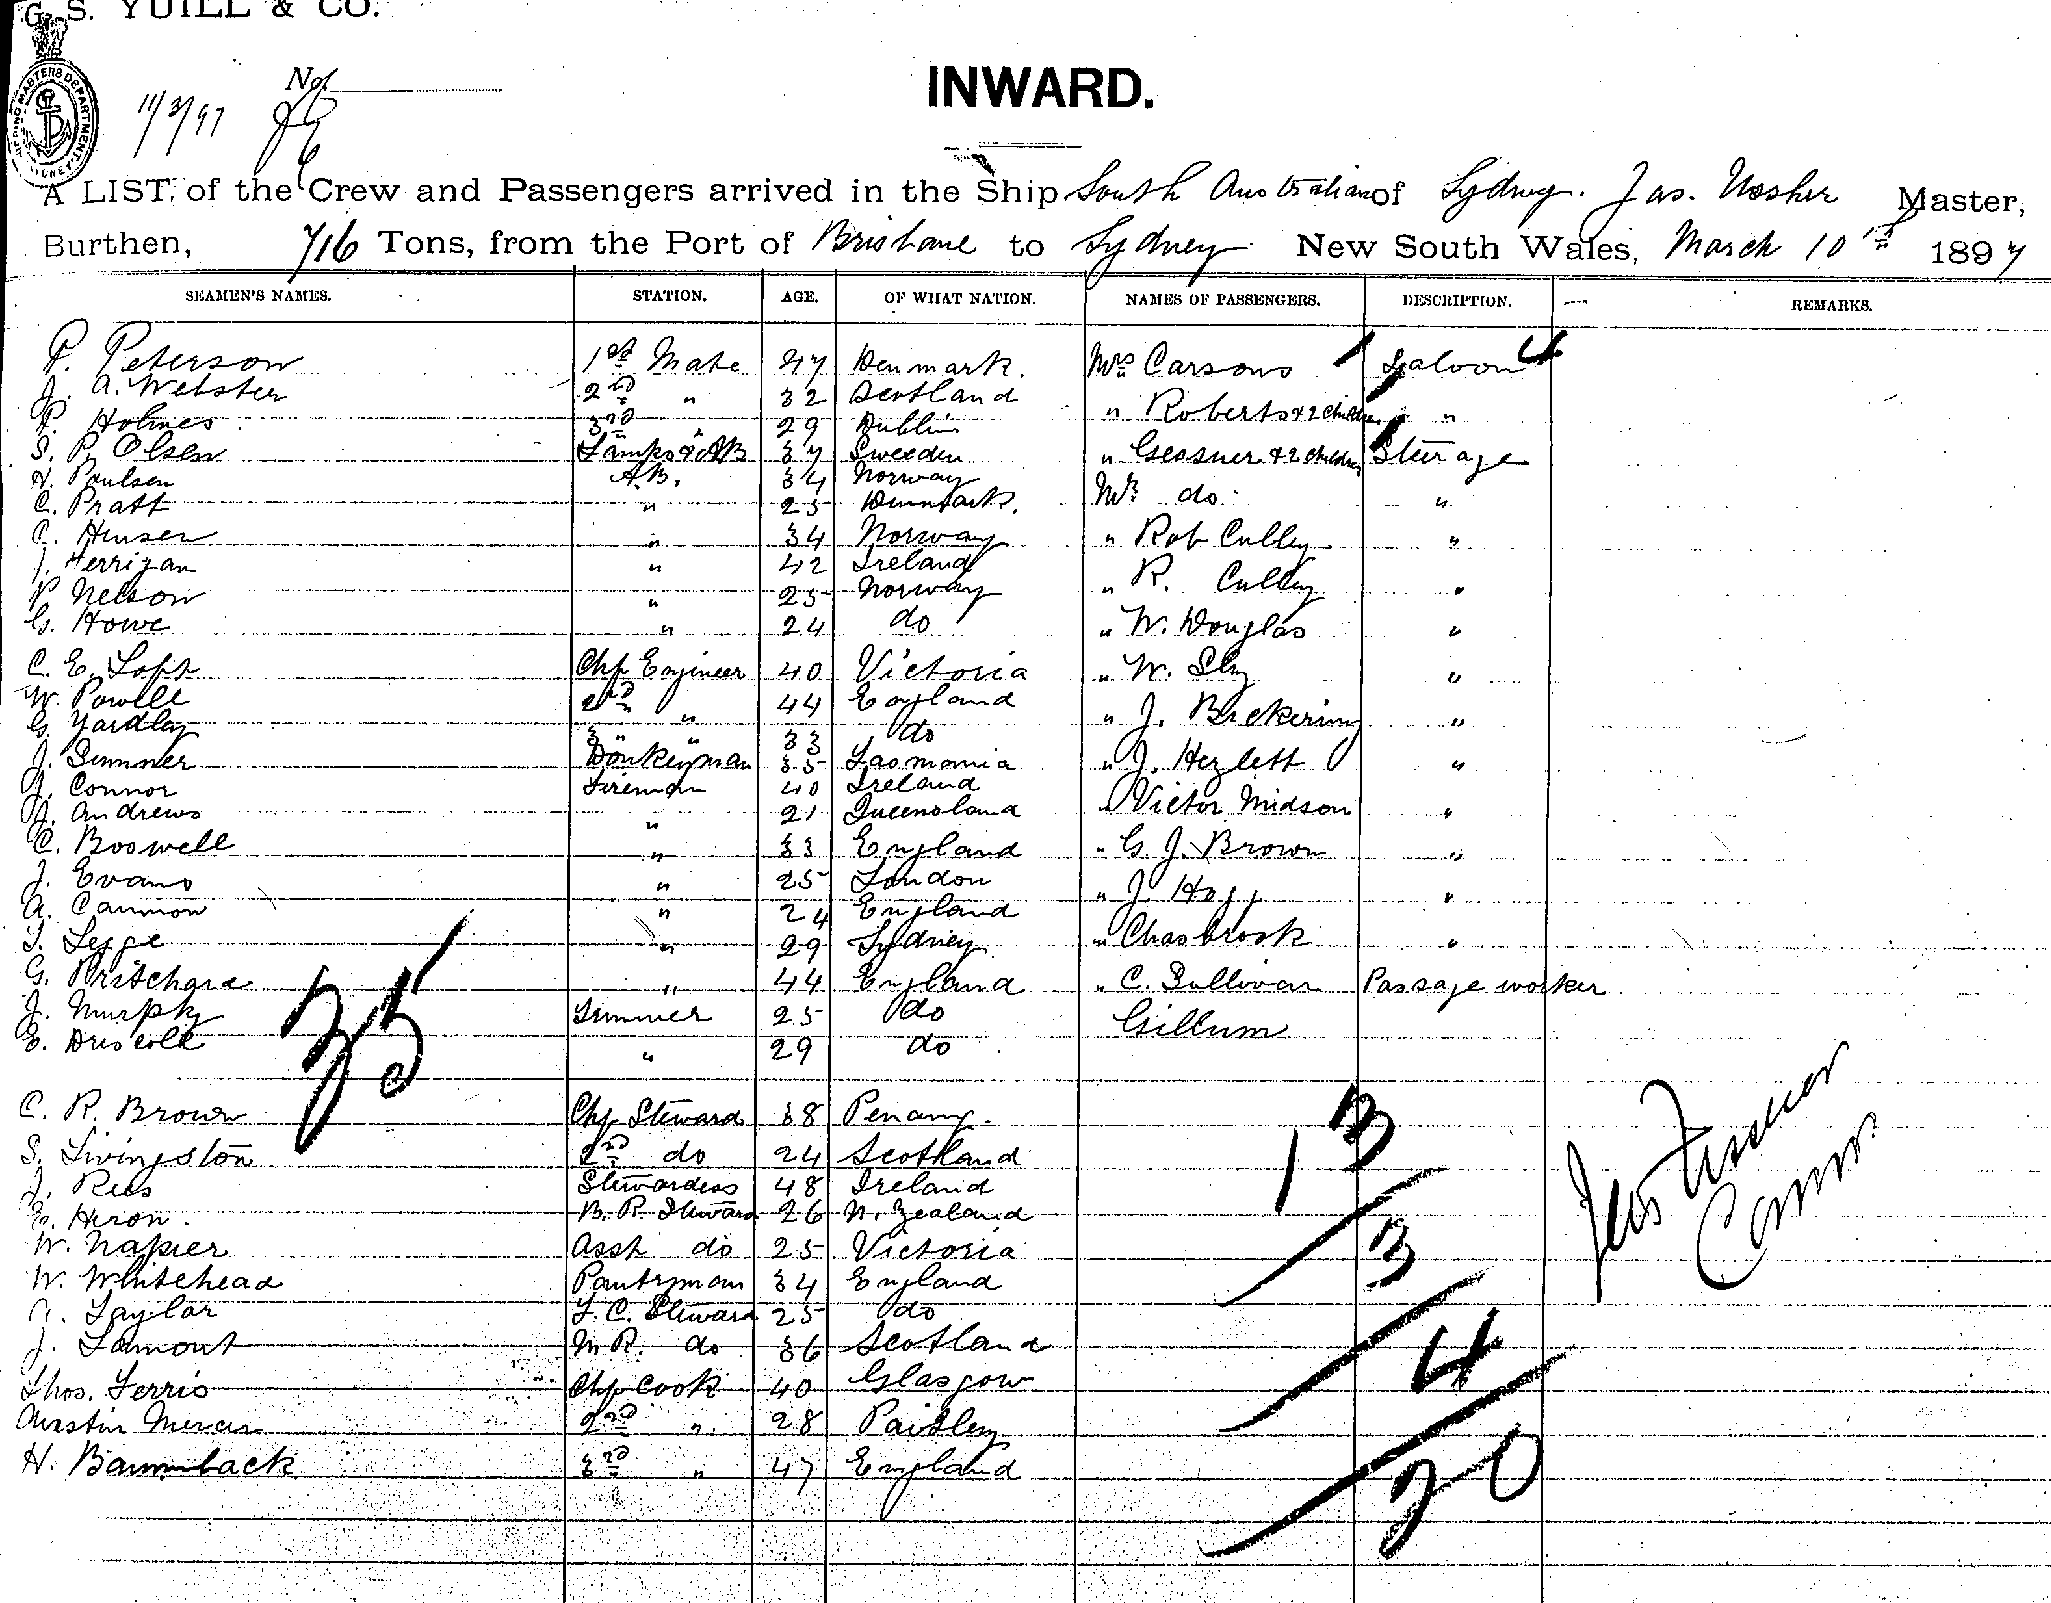 G. S. YUILL & CO.
No.
11/3/97
INWARD.
A LIST, of the Crew and Passengers arrived in the Ship South Australian of Sydney. Jas. Ussher Master,
Burthen, 716 Tons, from the Port of Brisbane to Sydney New South Wales, March 10th 1897
SEAMEN'S NAMES. STATION. AGE. OF WHAT NATION. NAMES OF PASSENGERS. DESCRIPTION. REMARKS.
P. Peterson 1st Mate 47 Denmark. Mrs Carsons 1 Saloon 4
J. A. Webster 2nd " 32 Scotland " Roberts & 2 children "
P. Holmes 3rd " 29 Dublin
S. P. Olsen Lamps & AB 37 Sweeden " Gessner & 2 children Steerage
H. Paulsen A.B. 34 Norway Mr do "
C. Pratt " 25 Denmark.
C. Hinser " 34 Norway " Rob Culley "
J. Herrigan " 42 Ireland " R. Culley "
P. Nelson " 25 Norway
G. Howe " 24 do " W. Douglas "
C. E. Loft Chf Engineer 40 Victoria " W. Sly "
W. Powell 2nd " 44 England " J. Bickering "
G. Yardley 3 " " 33 do
J. Sumner Donkeyman 35 Tasmania " J. Hezlett "
J. Connor Fireman 40 Ireland
J. Andrews " 21 Queensland " Victor Midson "
C. Boswell " 33 England " G. J. Brown "
J. Evans " 25 London " J. Hogg "
A. Cannon " 24 England
T. Legge " 29 Sydney " Chas brook "
G. Pritchard " 44 England " C. Sullivan Passage worker
J. Murphy Trimmer 25 do Gillum
E. Driscoll " 29 do
35
C. R. Brown Chf Steward 38 Penang.
S. Livingston 2nd do 24 Scotland
J. Rees Stewardess 48 Ireland
E. Heron. B. R. Steward 26 N. Zealand
W. Napier Asst do 25 Victoria
W. Whitehead Pantryman 34 England
A. Taylor F. C. Steward 25 do
J. Lamont M R. do 36 Scotland
Thos. Ferris Chf Cook 40 Glasgow
Austin Mercer 2nd " 28 Paisley
H. Baumback 3rd " 47 England
13
3
4
20